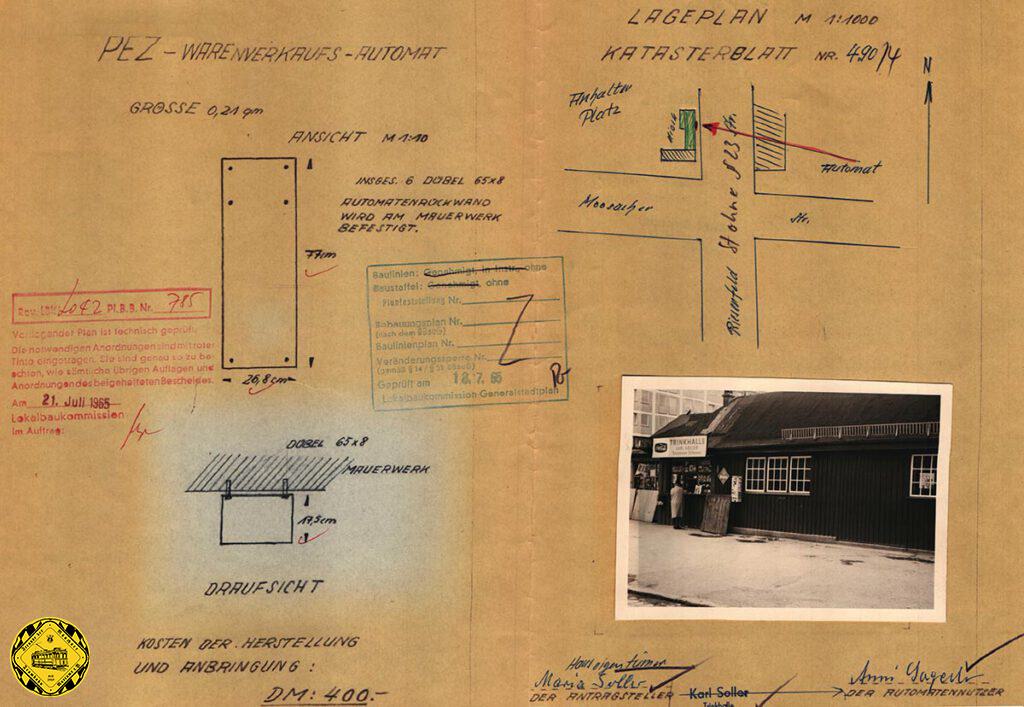 PEZ - WARENVERKAUFS - AUTOMAT
GRÖSSE 0,21 qm
ANSICHT M 1:10
INSGES. 6 DÜBEL 65x8
AUTOMATENRÜCKWAND
WIRD AM MAUERWERK
BEFESTIGT.
77cm
26,8cm
Pl.B.B. Nr. 785
Vorliegender Plan ist technisch geprüft.
Die notwendigen Anordnungen sind mit roter
Tinte eingetragen. Sie sind genau so zu be-
achten, wie sämtliche übrigen Auflagen und
Anordnungen des beigehefteten Bescheides.
Am 21. Juli 1965
Lokalbaukommission
Im Auftrag:
Baulinien: Genehmigt, in Instr., ohne
Baustoffel: Genehmigt, ohne
Planfeststellung Nr.
Bebauungsplan Nr.
(nach dem BBauG)
Baulinienplan Nr.
Veränderungssperre Nr.
Geprüft am 12.7.65
Lokalbaukommission Generalstadtplan
DÜBEL 65x8
MAUERWERK
17,5cm
DRAUFSICHT
KOSTEN DER HERSTELLUNG
UND ANBRINGUNG :
DM: 400.-
LAGEPLAN M 1:1000
KATASTERBLATT NR. 490/4
N
Anhalter
Platz
Kiosk
Automat
Moosacher
Str.
TRINKHALLE
Hauseigentümer
Maria Soller
DER ANTRAGSTELLER
Karl Soller
Trinkhalle
Anni
DER AUTOMATENNUTZER